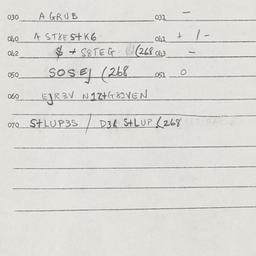 030 A GRUB 031 –
040 A ST8ESTK6 041 + / –
042 $ + S8TEG (268 043 –
050 SOSEJ (268 051 0
060 EJR3V N1Z+G83VEN
070 S+LUP3S / D3R S+LUP (268